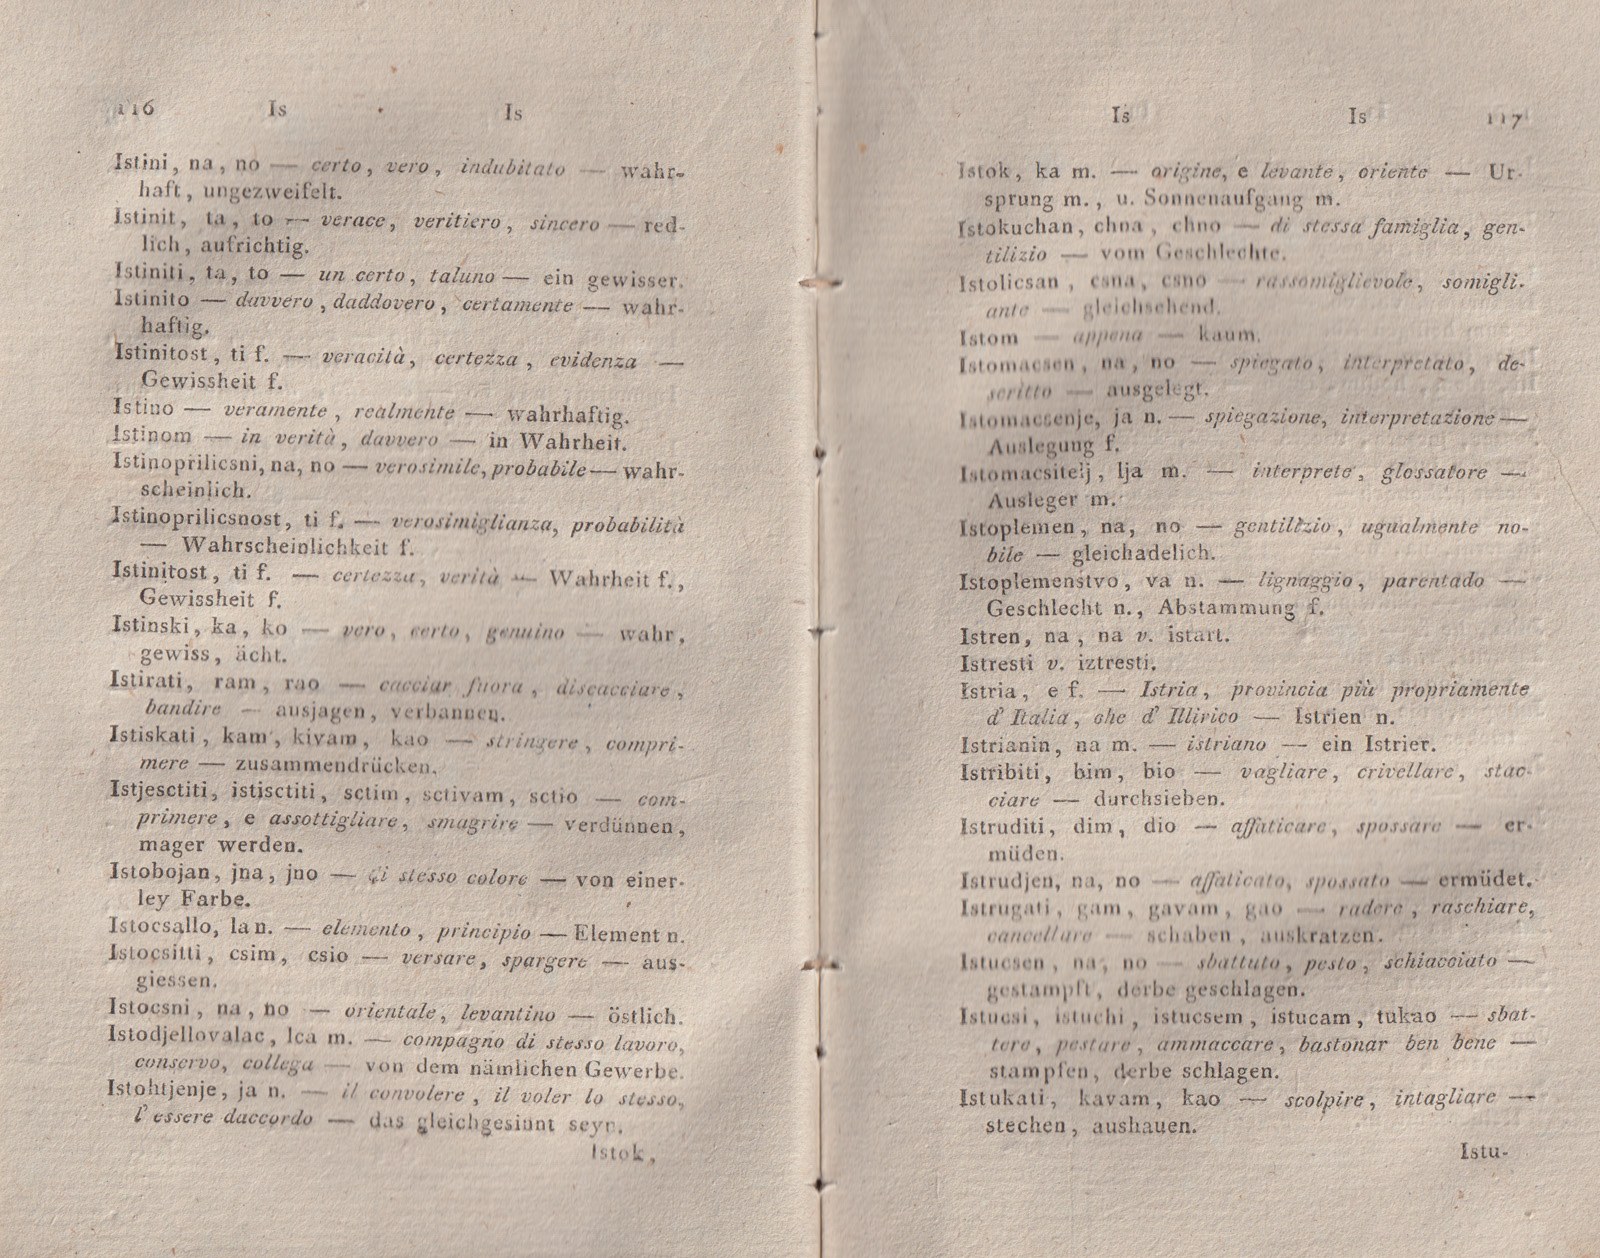 116 Is Is
Istini, na, no — certo, vero, indubitato — wahr-
haft, ungezweifelt.
Istinit, ta, to — verace, veritiero, sincero — red-
lich, aufrichtig.
Istiniti, ta, to — un certo, taluno — ein gewisser.
Istinito — davvero, daddovero, certamente — wahr-
haftig.
Istinitost, ti f. — veracità, certezza, evidenza —
Gewissheit f.
Istino — veramente, realmente — wahrhaftig.
Istinom — in verità, davvero — in Wahrheit.
Istinoprilicsni, na, no — verosimile, probabile — wahr-
scheinlich.
Istinoprilicsnost, ti f. — verosimiglianza, probabilità
— Wahrscheinlichkeit f.
Istinitost, ti f. — certezza, verità — Wahrheit f.,
Gewissheit f.
Istinski, ka, ko — vero, certo, genuino — wahr,
gewiss, ächt.
Istirati, ram, rao — cacciar fuora, discacciare,
bandire — ausjagen, verbannen.
Istiskati, kam, kivam, kao — stringere, compri-
mere — zusammendrücken.
Istjesctiti, istisctiti, sctim, sctivam, sctio — com-
primere, e assottigliare, smagrire — verdünnen,
mager werden.
Istobojan, jna, jno — di stesso colore — von einer-
ley Farbe.
Istocsallo, la n. — elemento, principio — Element n.
Istocsitti, csim, csio — versare, spargere — aus-
giessen.
Istocsni, na, no — orientale, levantino — östlich.
Istodjellovalac, lca m. — compagno di stesso lavoro,
conservo, collega — von dem nämlichen Gewerbe.
Istohtjenje, ja n. — il convolere, il voler lo stesso,
l' essere daccordo — das gleichgesinnt seyn.
Istok,
Is Is 117
Istok, ka m. — origine, e levante, oriente — Ur-
sprung m., u. Sonnenaufgang m.
Istokuchan, chna, chno — di stessa famiglia, gen-
tilizio — vom Geschlechte.
Istolicsan, csna, csno — rassomiglievole, somigli-
ante — gleichsehend.
Istom — appena — kaum.
Istomacsen, na, no — spiegato, interpretato, de-
scritto — ausgelegt.
Istomacsenje, ja n. — spiegazione, interpretazione —
Auslegung f.
Istomacsitelj, lja m. — interprete, glossatore —
Ausleger m.
Istoplemen, na, no — gentilizio, ugualmente no-
bile — gleichadelich.
Istoplemenstvo, va n. — lignaggio, parentado —
Geschlecht n., Abstammung f.
Istren, na, na v. istart.
Istresti v. iztresti.
Istria, e f. — Istria, provincia più propriamente
d' Italia, che d' Illirico — Istrien n.
Istrianin, na m. — istriano — ein Istrier.
Istribiti, bim, bio — vagliare, crivellare, stac-
ciare — durchsieben.
Istruditi, dim, dio — affaticare, spossare — er-
müden.
Istrudjen, na, no — affaticato, spossato — ermüdet.
Istrugati, gam, gavam, gao — radere, raschiare,
cancellare — schaben, auskratzen.
Istucsen, na, no — sbattuto, pesto, schiacciato —
gestampft, derbe geschlagen.
Istucsi, istuchi, istucsem, istucam, tukao — sbat-
tere, pestare, ammaccare, bastonar ben bene —
stampfen, derbe schlagen.
Istukati, kavam, kao — scolpire, intagliare —
stechen, aushauen.
Istu-